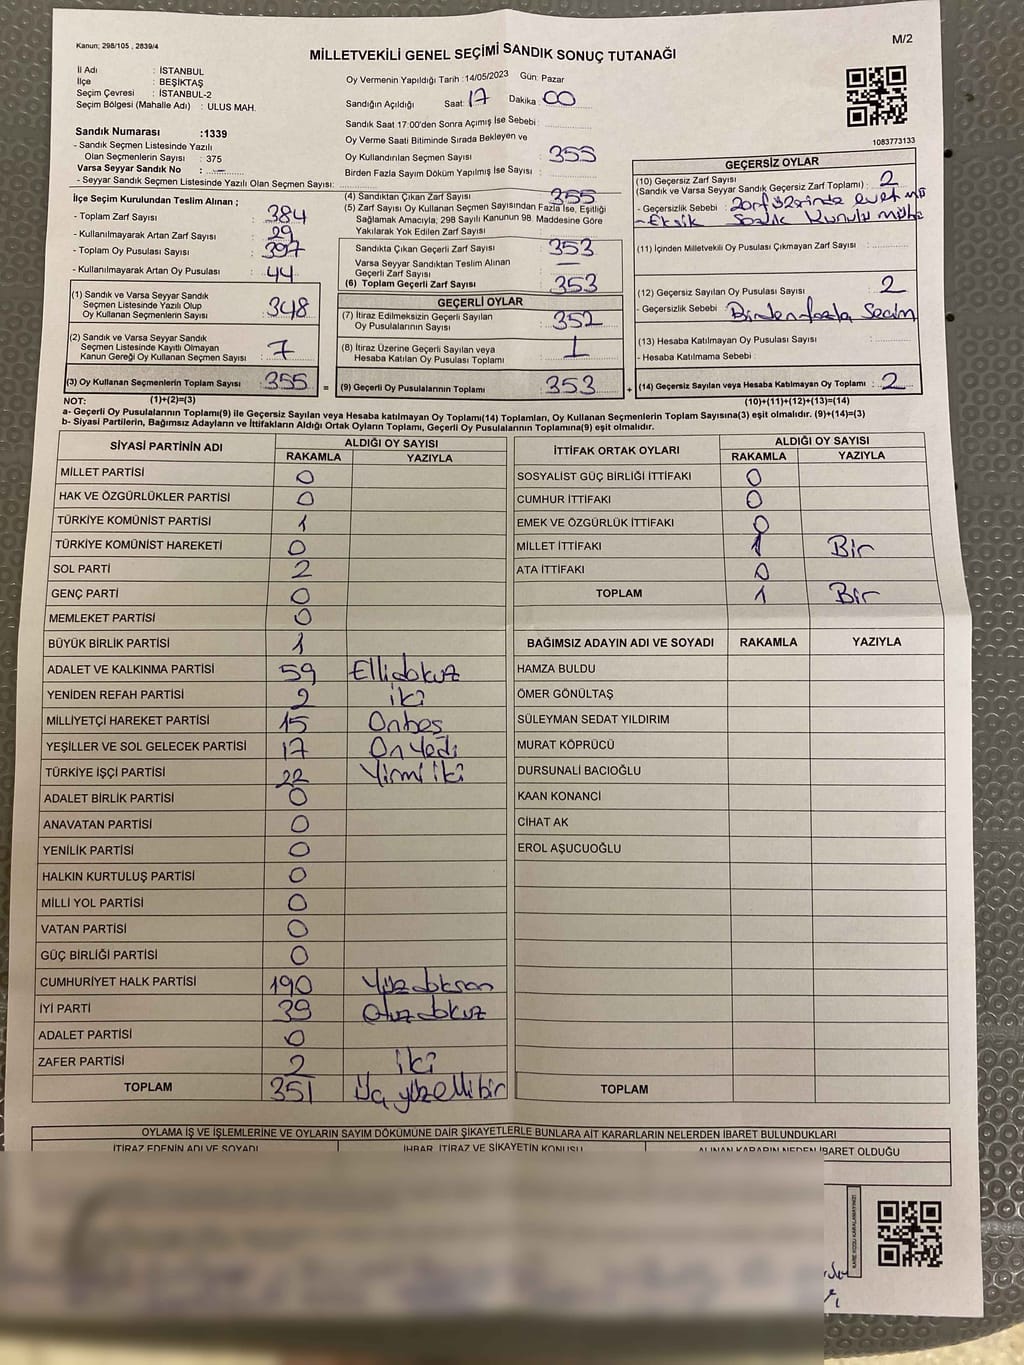 Kanun; 298/105 , 2839/4
M/2
MİLLETVEKİLİ GENEL SEÇİMİ SANDIK SONUÇ TUTANAĞI
İl Adı : İSTANBUL
İlçe : BEŞİKTAŞ
Seçim Çevresi : İSTANBUL-2
Seçim Bölgesi (Mahalle Adı) : ULUS MAH.
Sandık Numarası :1339
- Sandık Seçmen Listesinde Yazılı
Olan Seçmenlerin Sayısı : 375
Varsa Seyyar Sandık No : -
- Seyyar Sandık Seçmen Listesinde Yazılı Olan Seçmen Sayısı:
Oy Vermenin Yapıldığı Tarih :14/05/2023 Gün: Pazar
Sandığın Açıldığı Saat: 17 Dakika: 00
Sandık Saat 17:00'den Sonra Açımış İse Sebebi :
Oy Verme Saati Bitiminde Sırada Bekleyen ve
Oy Kullandırılan Seçmen Sayısı : 355
Birden Fazla Sayım Döküm Yapılmış İse Sayısı :
1083773133
İlçe Seçim Kurulundan Teslim Alınan ;
- Toplam Zarf Sayısı : 384
- Kullanılmayarak Artan Zarf Sayısı : 29
- Toplam Oy Pusulası Sayısı : 397
- Kullanılmayarak Artan Oy Pusulası : 44
(1) Sandık ve Varsa Seyyar Sandık
Seçmen Listesinde Yazılı Olup
Oy Kullanan Seçmenlerin Sayısı : 348
(2) Sandık ve Varsa Seyyar Sandık
Seçmen Listesinde Kayıtlı Olmayan
Kanun Gereği Oy Kullanan Seçmen Sayısı : 7
(3) Oy Kullanan Seçmenlerin Toplam Sayısı : 355 =
(4) Sandıktan Çıkan Zarf Sayısı : 355
(5) Zarf Sayısı Oy Kullanan Seçmen Sayısından Fazla İse, Eşitliği
Sağlamak Amacıyla, 298 Sayılı Kanunun 98. Maddesine Göre
Yakılarak Yok Edilen Zarf Sayısı :
Sandıkta Çıkan Geçerli Zarf Sayısı : 353
Varsa Seyyar Sandıktan Teslim Alınan
Geçerli Zarf Sayısı : -
(6) Toplam Geçerli Zarf Sayısı : 353
GEÇERLİ OYLAR
(7) İtiraz Edilmeksizin Geçerli Sayılan
Oy Pusulalarının Sayısı : 352
(8) İtiraz Üzerine Geçerli Sayılan veya
Hesaba Katılan Oy Pusulası Toplamı : 1
(9) Geçerli Oy Pusulalarının Toplamı : 353 +
GEÇERSİZ OYLAR
(10) Geçersiz Zarf Sayısı : 2
(Sandık ve Varsa Seyyar Sandık Geçersiz Zarf Toplamı)
- Geçersizlik Sebebi : Zarf üzerinde evet mü
- Eksik Sandık Kurulu mühü
(11) İçinden Milletvekili Oy Pusulası Çıkmayan Zarf Sayısı :
(12) Geçersiz Sayılan Oy Pusulası Sayısı : 2
- Geçersizlik Sebebi : Birden fazla Seçim
(13) Hesaba Katılmayan Oy Pusulası Sayısı :
- Hesaba Katılmama Sebebi :
(14) Geçersiz Sayılan veya Hesaba Katılmayan Oy Toplamı : 2
NOT: (1)+(2)=(3) (10)+(11)+(12)+(13)=(14)
a- Geçerli Oy Pusulalarının Toplamı(9) ile Geçersiz Sayılan veya Hesaba katılmayan Oy Toplamı(14) Toplamları, Oy Kullanan Seçmenlerin Toplam Sayısına(3) eşit olmalıdır. (9)+(14)=(3)
b- Siyasi Partilerin, Bağımsız Adayların ve İttifakların Aldığı Ortak Oyların Toplamı, Geçerli Oy Pusulalarının Toplamına(9) eşit olmalıdır.
SİYASİ PARTİNİN ADI ALDIĞI OY SAYISI
RAKAMLA YAZIYLA
MİLLET PARTİSİ 0
HAK VE ÖZGÜRLÜKLER PARTİSİ 0
TÜRKİYE KOMÜNİST PARTİSİ 1
TÜRKİYE KOMÜNİST HAREKETİ 0
SOL PARTİ 2
GENÇ PARTİ 0
MEMLEKET PARTİSİ 0
BÜYÜK BİRLİK PARTİSİ 1
ADALET VE KALKINMA PARTİSİ 59 Ellidokuz
YENİDEN REFAH PARTİSİ 2 iki
MİLLİYETÇİ HAREKET PARTİSİ 15 Onbeş
YEŞİLLER VE SOL GELECEK PARTİSİ 17 On Yedi
TÜRKİYE İŞÇİ PARTİSİ 22 Yirmi iki
ADALET BİRLİK PARTİSİ 0
ANAVATAN PARTİSİ 0
YENİLİK PARTİSİ 0
HALKIN KURTULUŞ PARTİSİ 0
MİLLİ YOL PARTİSİ 0
VATAN PARTİSİ 0
GÜÇ BİRLİĞİ PARTİSİ 0
CUMHURİYET HALK PARTİSİ 190 Yüzdoksan
İYİ PARTİ 39 Otuzdokuz
ADALET PARTİSİ 0
ZAFER PARTİSİ 2 iki
TOPLAM 351 Üç yüzellibir
İTTİFAK ORTAK OYLARI ALDIĞI OY SAYISI
RAKAMLA YAZIYLA
SOSYALİST GÜÇ BİRLİĞİ İTTİFAKI 0
CUMHUR İTTİFAKI 0
EMEK VE ÖZGÜRLÜK İTTİFAKI 0
MİLLET İTTİFAKI 1 Bir
ATA İTTİFAKI 0
TOPLAM 1 Bir
BAĞIMSIZ ADAYIN ADI VE SOYADI RAKAMLA YAZIYLA
HAMZA BULDU
ÖMER GÖNÜLTAŞ
SÜLEYMAN SEDAT YILDIRIM
MURAT KÖPRÜCÜ
DURSUNALİ BACIOĞLU
KAAN KONANCİ
CİHAT AK
EROL AŞUCUOĞLU
TOPLAM
OYLAMA İŞ VE İŞLEMLERİNE VE OYLARIN SAYIM DÖKÜMÜNE DAİR ŞİKAYETLERLE BUNLARA AİT KARARLARIN NELERDEN İBARET BULUNDUKLARI
İTİRAZ EDENİN ADI VE SOYADI İHBAR, İTİRAZ VE ŞİKAYETİN KONUSU ALINAN KARARIN NEDEN İBARET OLDUĞU
KARE KODU KARALAMAYINIZ!